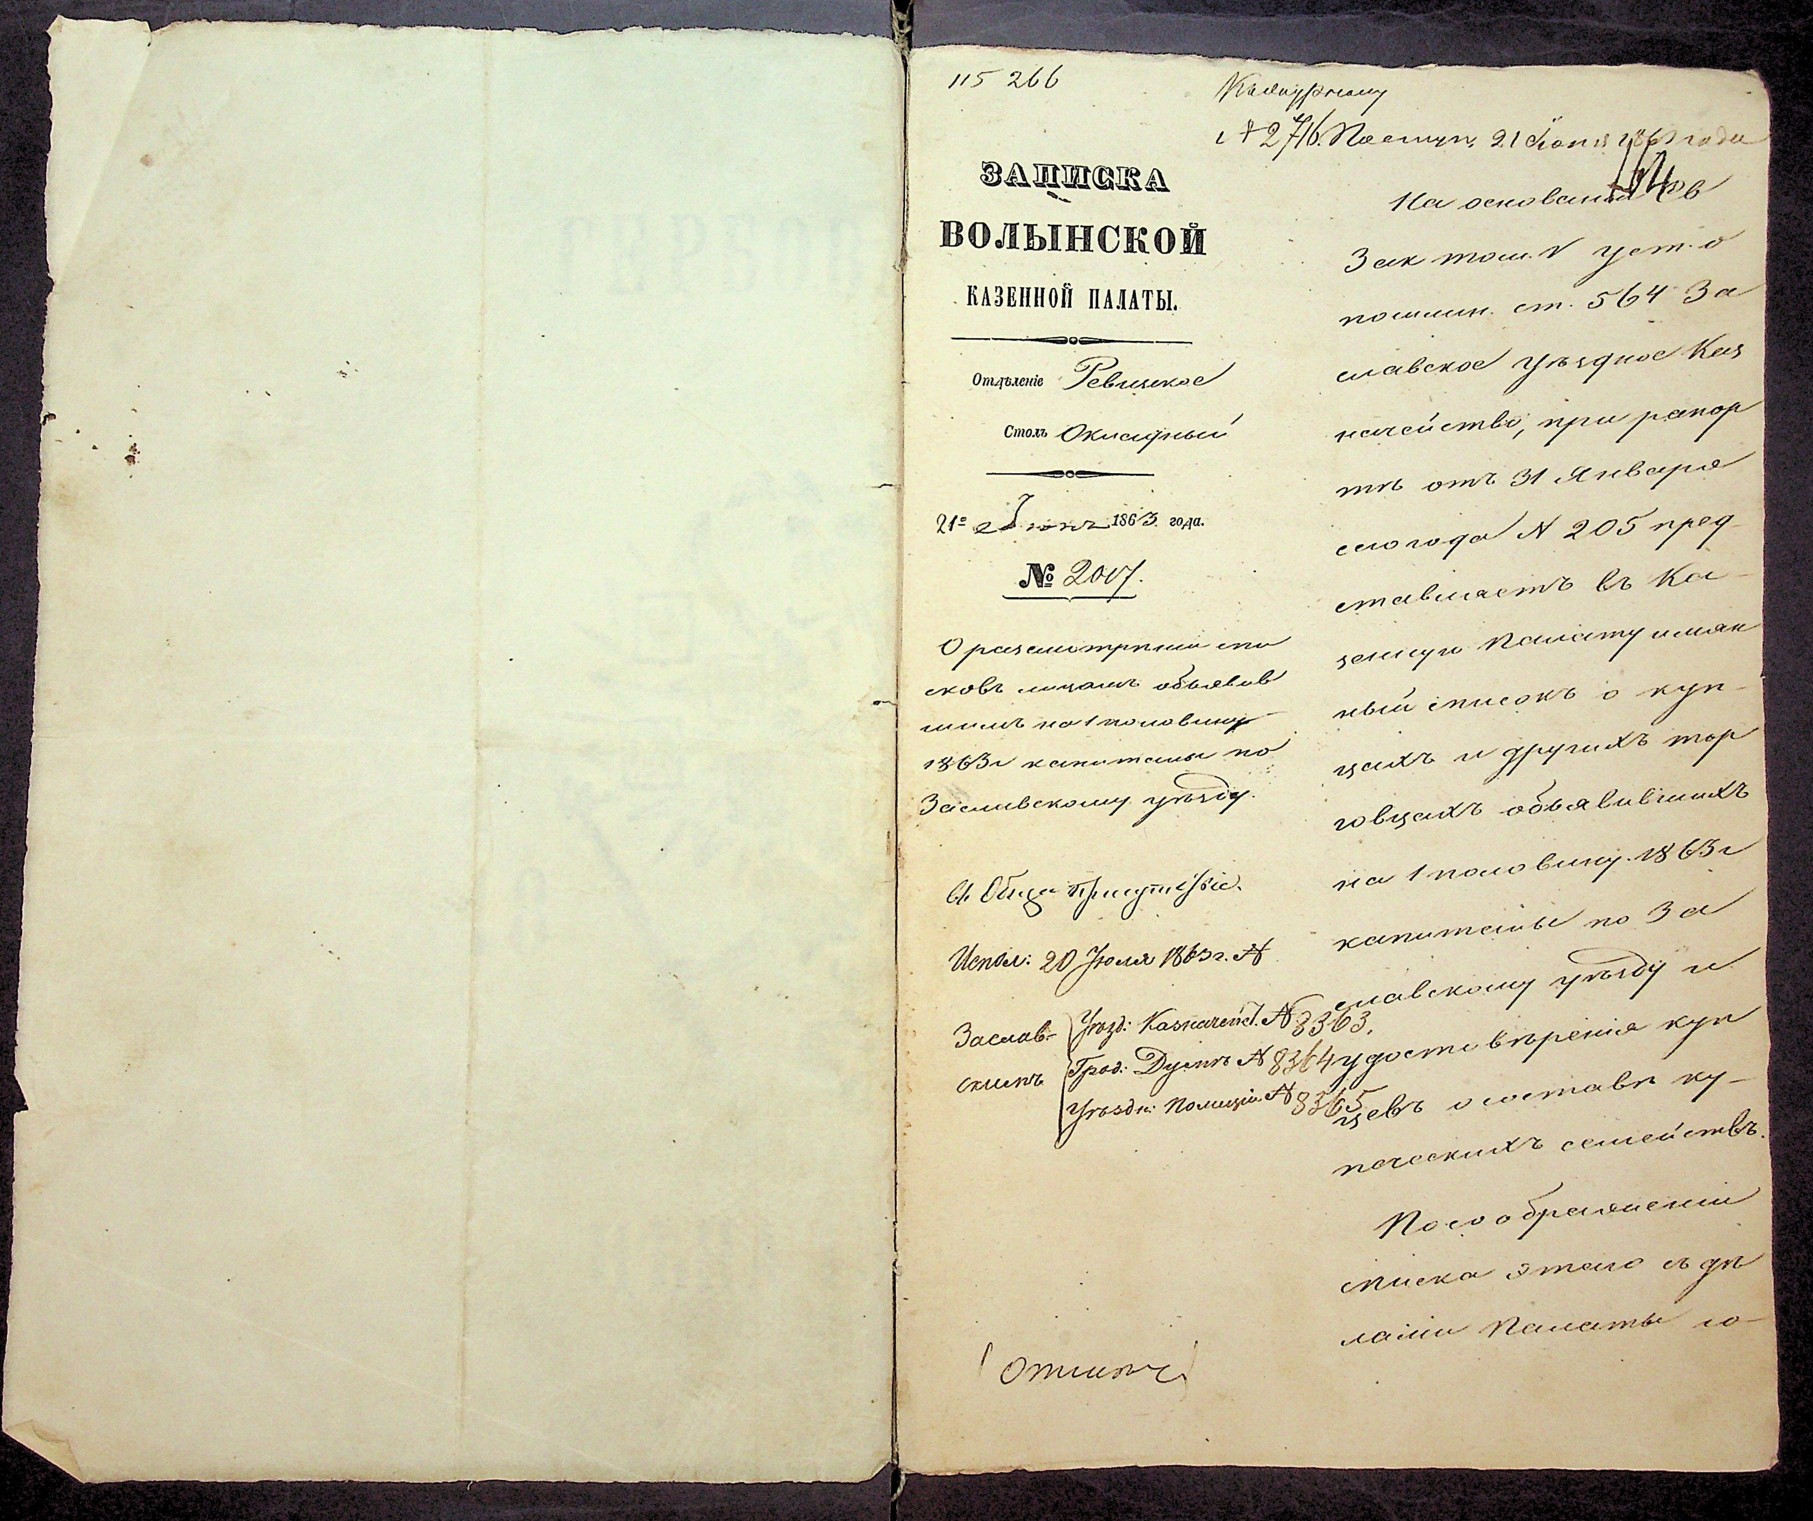 115 266
№ 2716. Поступ. 21 Іюня 1863 года
ЗАПИСКА
ВОЛЫНСКОЙ
КАЗЕННОЙ ПАЛАТЫ.
Отдѣленіе Ревизское
Столъ Окладный
21го Іюня 1863 года.
№ 2017.
О разсмотрѣніи спи
сковъ лицамъ объявив
шимъ на 1 половину
1863 г капиталы по
Заславскому уѣзду.
Въ Общее присутствіе.
Испол: 20 Іюля 1863 г. №
Заслав-
скимъ
Уѣзд: Казначейст. № 8363.
Град: Думѣ № 8364
Уѣздн: Полиціи № 8365
На основаніи Св
Зак том. V уст. о
пошлин. ст. 564 За
славское уѣздное Каз
начейство, при рапор
тѣ отъ 31 Января
сего года № 205 пред
ставляетъ въ Ка-
зенную Палату имян
ный списокъ о куп-
цахъ и другихъ тор
говцахъ объявившихъ
на 1 половину 1863 г
капиталы по За
славскому уѣзду и
удостовѣренія куп
цевъ о составѣ ку-
печескихъ семействъ.
По соображеніи
списка этого съ дѣ
лами Палаты